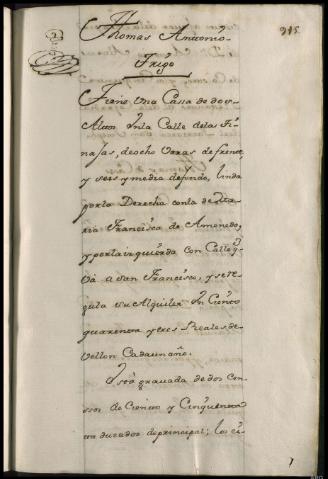 915
Thomas Antonio
Trigo
Tiene Una Cassa de dos
Altos Inla Calle delas Ti
najas, deocho Varas de frente,
y seis y media defondo, linda
porla Derecha conla de Ma
ria Francisca de Amonedo,
y porla izquierda con Calle q.
và a San Francisco, y sere
gula su Alquiler In Ciento
quarenta y tres Reales de
vellon Cadaunaño.
Está gravada de dos Cen
sos de Ciento y Cinquenta
en ducados deprincipal; los